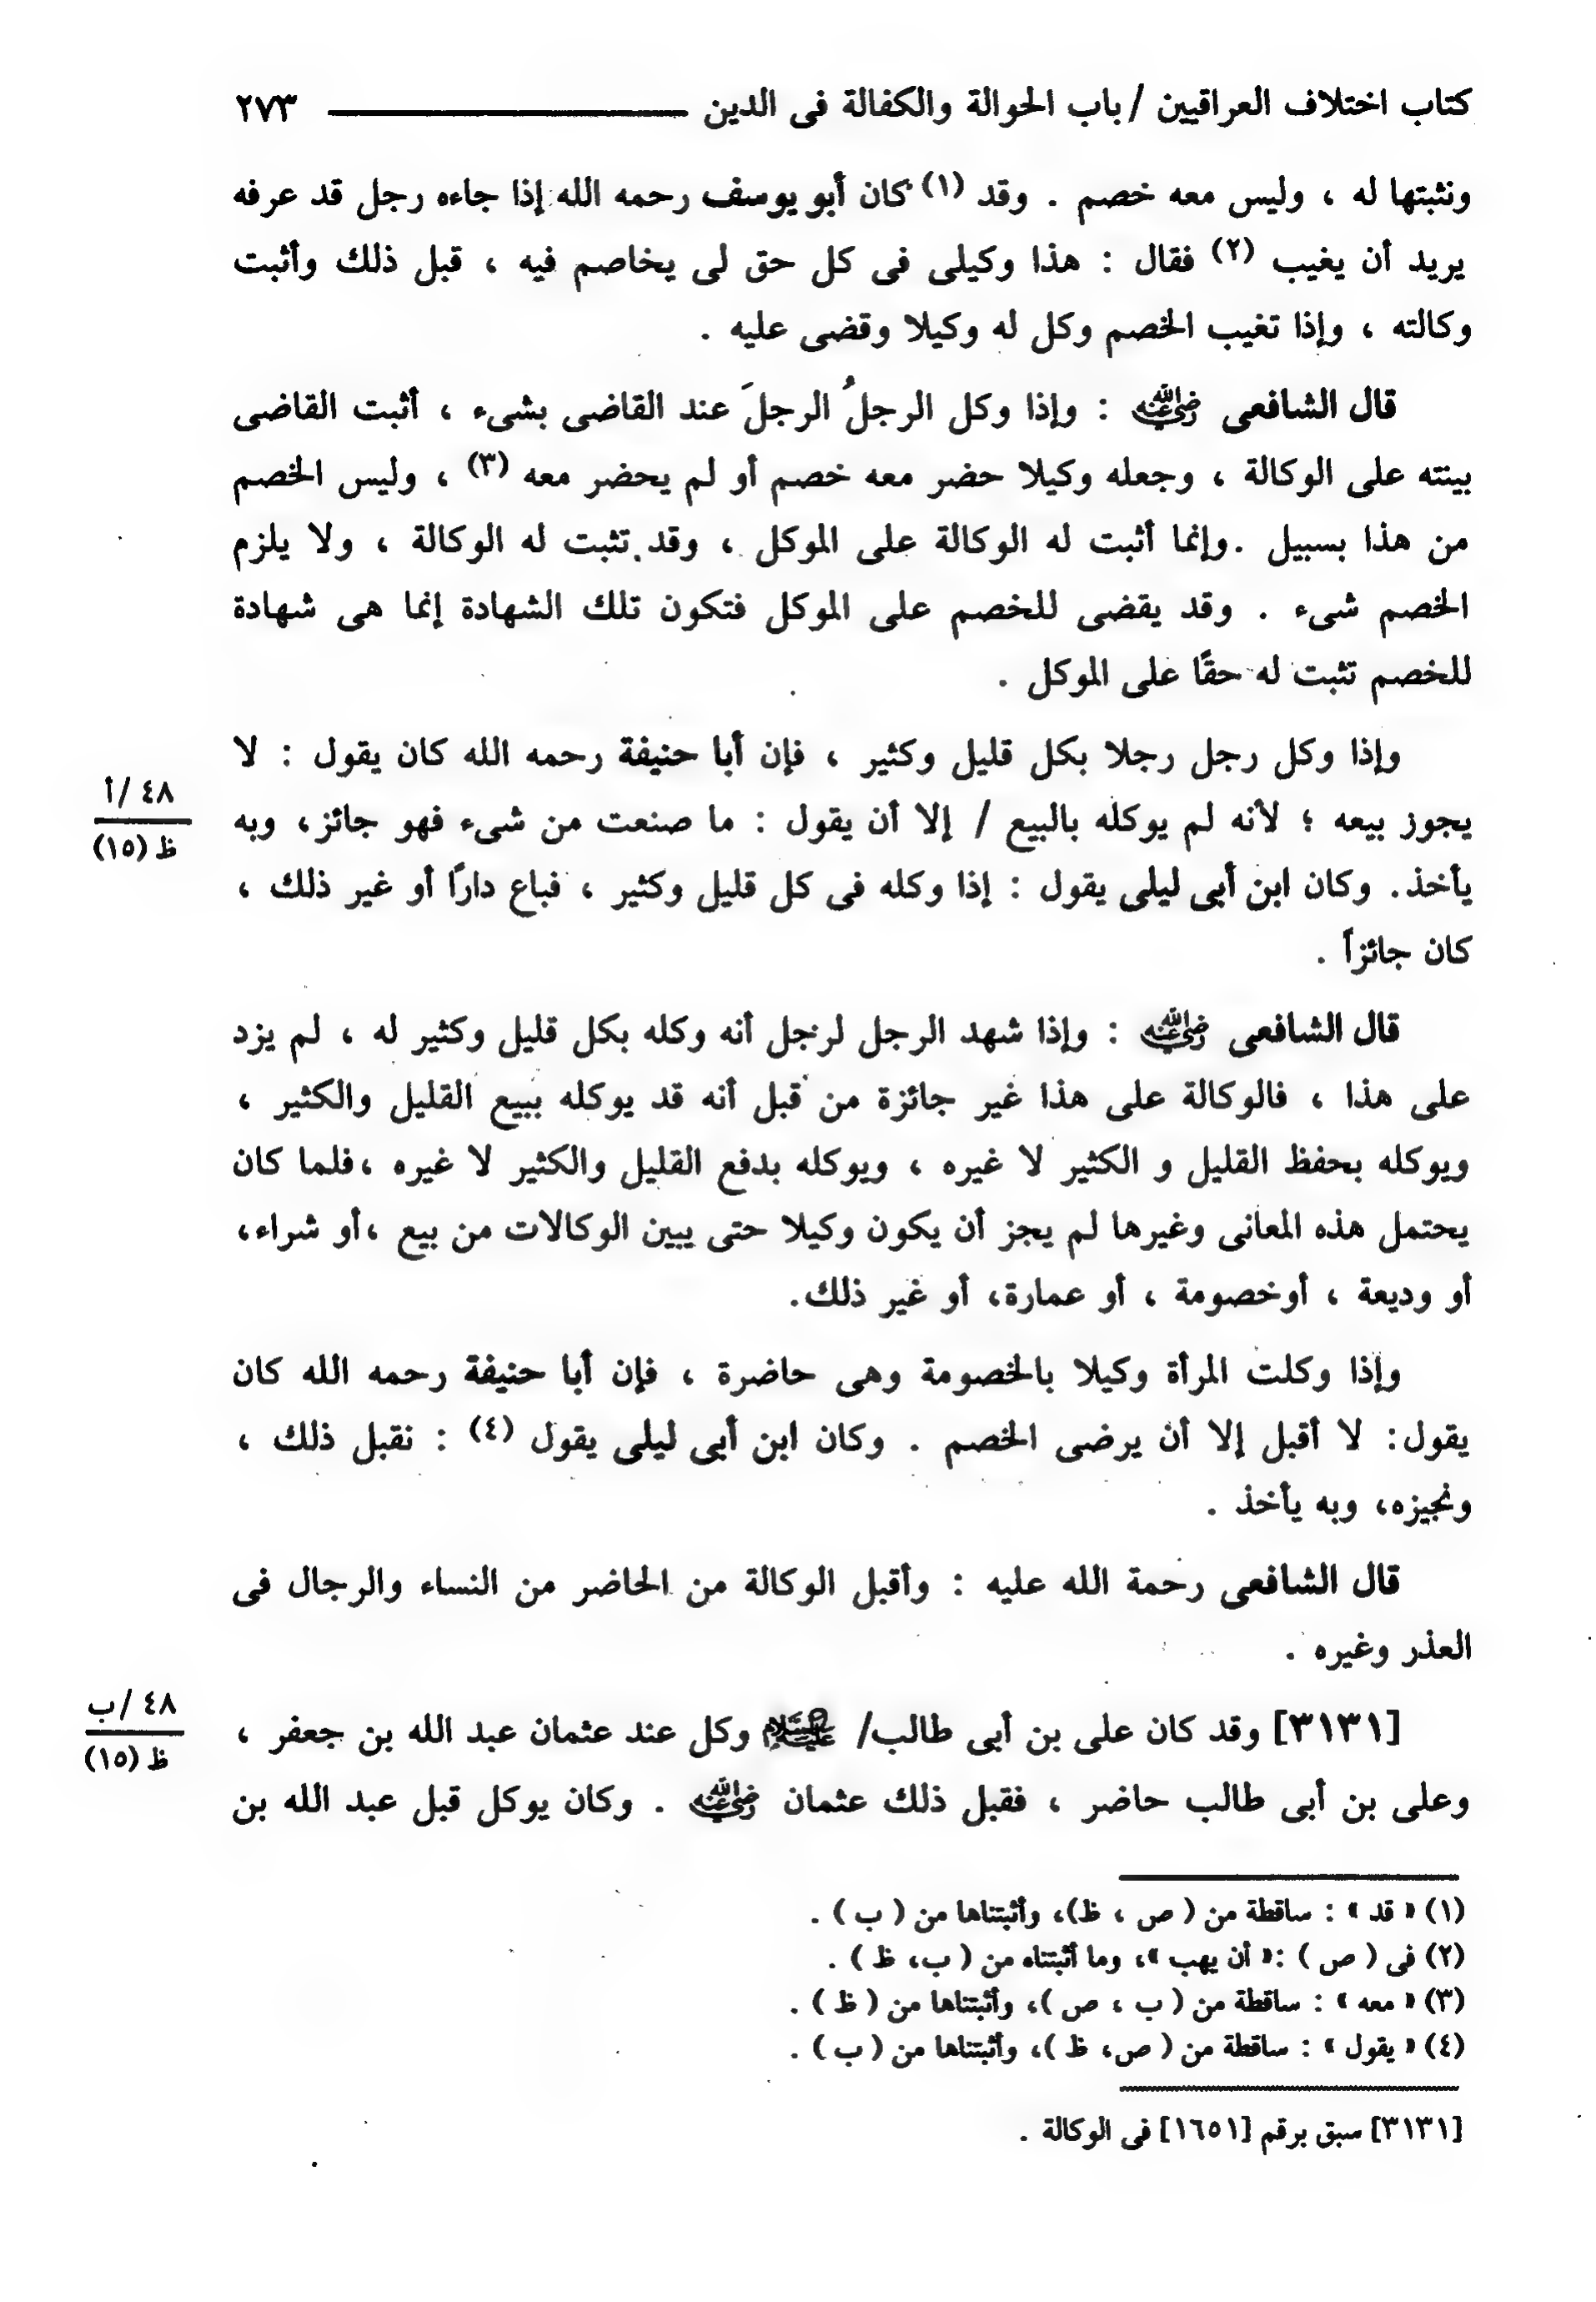 كتاب اختلاف العراقيين / باب الحوالة والكفالة فى الدين ـــــــ ٢٧٣
ونثبتها له ، وليس معه خصم . وقد (١) كان أبو يوسف رحمه الله إذا جاءه رجل قد عرفه
يريد أن يغيب (٢) فقال : هذا وكيلى فى كل حق لى يخاصم فيه ، قبل ذلك وأثبت
وكالته ، وإذا تغيب الخصم وكل له وكيلا وقضى عليه .
قال الشافعى رضي الله عنه : وإذا وكل الرجلُ الرجلَ عند القاضى بشىء ، أثبت القاضى
بينته على الوكالة ، وجعله وكيلا حضر معه خصم أو لم يحضر معه (٣) ، وليس الخصم
من هذا بسبيل . وإنما أثبت له الوكالة على الموكل ، وقد تثبت له الوكالة ، ولا يلزم
الخصم شىء . وقد يقضى للخصم على الموكل فتكون تلك الشهادة إنما هى شهادة
للخصم تثبت له حقًا على الموكل .
وإذا وكل رجل رجلا بكل قليل وكثير ، فإن أبا حنيفة رحمه الله كان يقول : لا
يجوز بيعه ؛ لأنه لم يوكله بالبيع / إلا أن يقول : ما صنعت من شىء فهو جائز، وبه
٤٨ / أ
ظ (١٥)
يأخذ. وكان ابن أبى ليلى يقول : إذا وكله فى كل قليل وكثير ، فباع دارًا أو غير ذلك ،
كان جائزاً .
قال الشافعى رضي الله عنه : وإذا شهد الرجل لرجل أنه وكله بكل قليل وكثير له ، لم يزد
على هذا ، فالوكالة على هذا غير جائزة من قبل أنه قد يوكله ببيع القليل والكثير ،
ويوكله بحفظ القليل و الكثير لا غيره ، ويوكله بدفع القليل والكثير لا غيره ،فلما كان
يحتمل هذه المعانى وغيرها لم يجز أن يكون وكيلا حتى يبين الوكالات من بيع ،أو شراء،
أو وديعة ، أوخصومة ، أو عمارة، أو غير ذلك.
وإذا وكلت المرأة وكيلا بالخصومة وهى حاضرة ، فإن أبا حنيفة رحمه الله كان
يقول: لا أقبل إلا أن يرضى الخصم . وكان ابن أبى ليلى يقول (٤) : نقبل ذلك ،
ونجيزه، وبه يأخذ .
قال الشافعى رحمة الله عليه : وأقبل الوكالة من الحاضر من النساء والرجال فى
العذر وغيره .
[٣١٣١] وقد كان على بن أبى طالب/ عليه السلام وكل عند عثمان عبد الله بن جعفر ،
٤٨ / ب
ظ (١٥)
وعلى بن أبى طالب حاضر ، فقبل ذلك عثمان رضي الله عنه . وكان يوكل قبل عبد الله بن
(١) « قد » : ساقطة من ( ص ، ظ)، وأثبتناها من ( ب ) .
(٢) فى ( ص ) :« أن يهب »، وما أثبتناه من ( ب، ظ ) .
(٣) « معه » : ساقطة من ( ب ، ص )، وأثبتناها من ( ظ ) .
(٤) « يقول » : ساقطة من ( ص، ظ )، وأثبتناها من ( ب ) .
[٣١٣١] سبق برقم [١٦٥١] فى الوكالة .